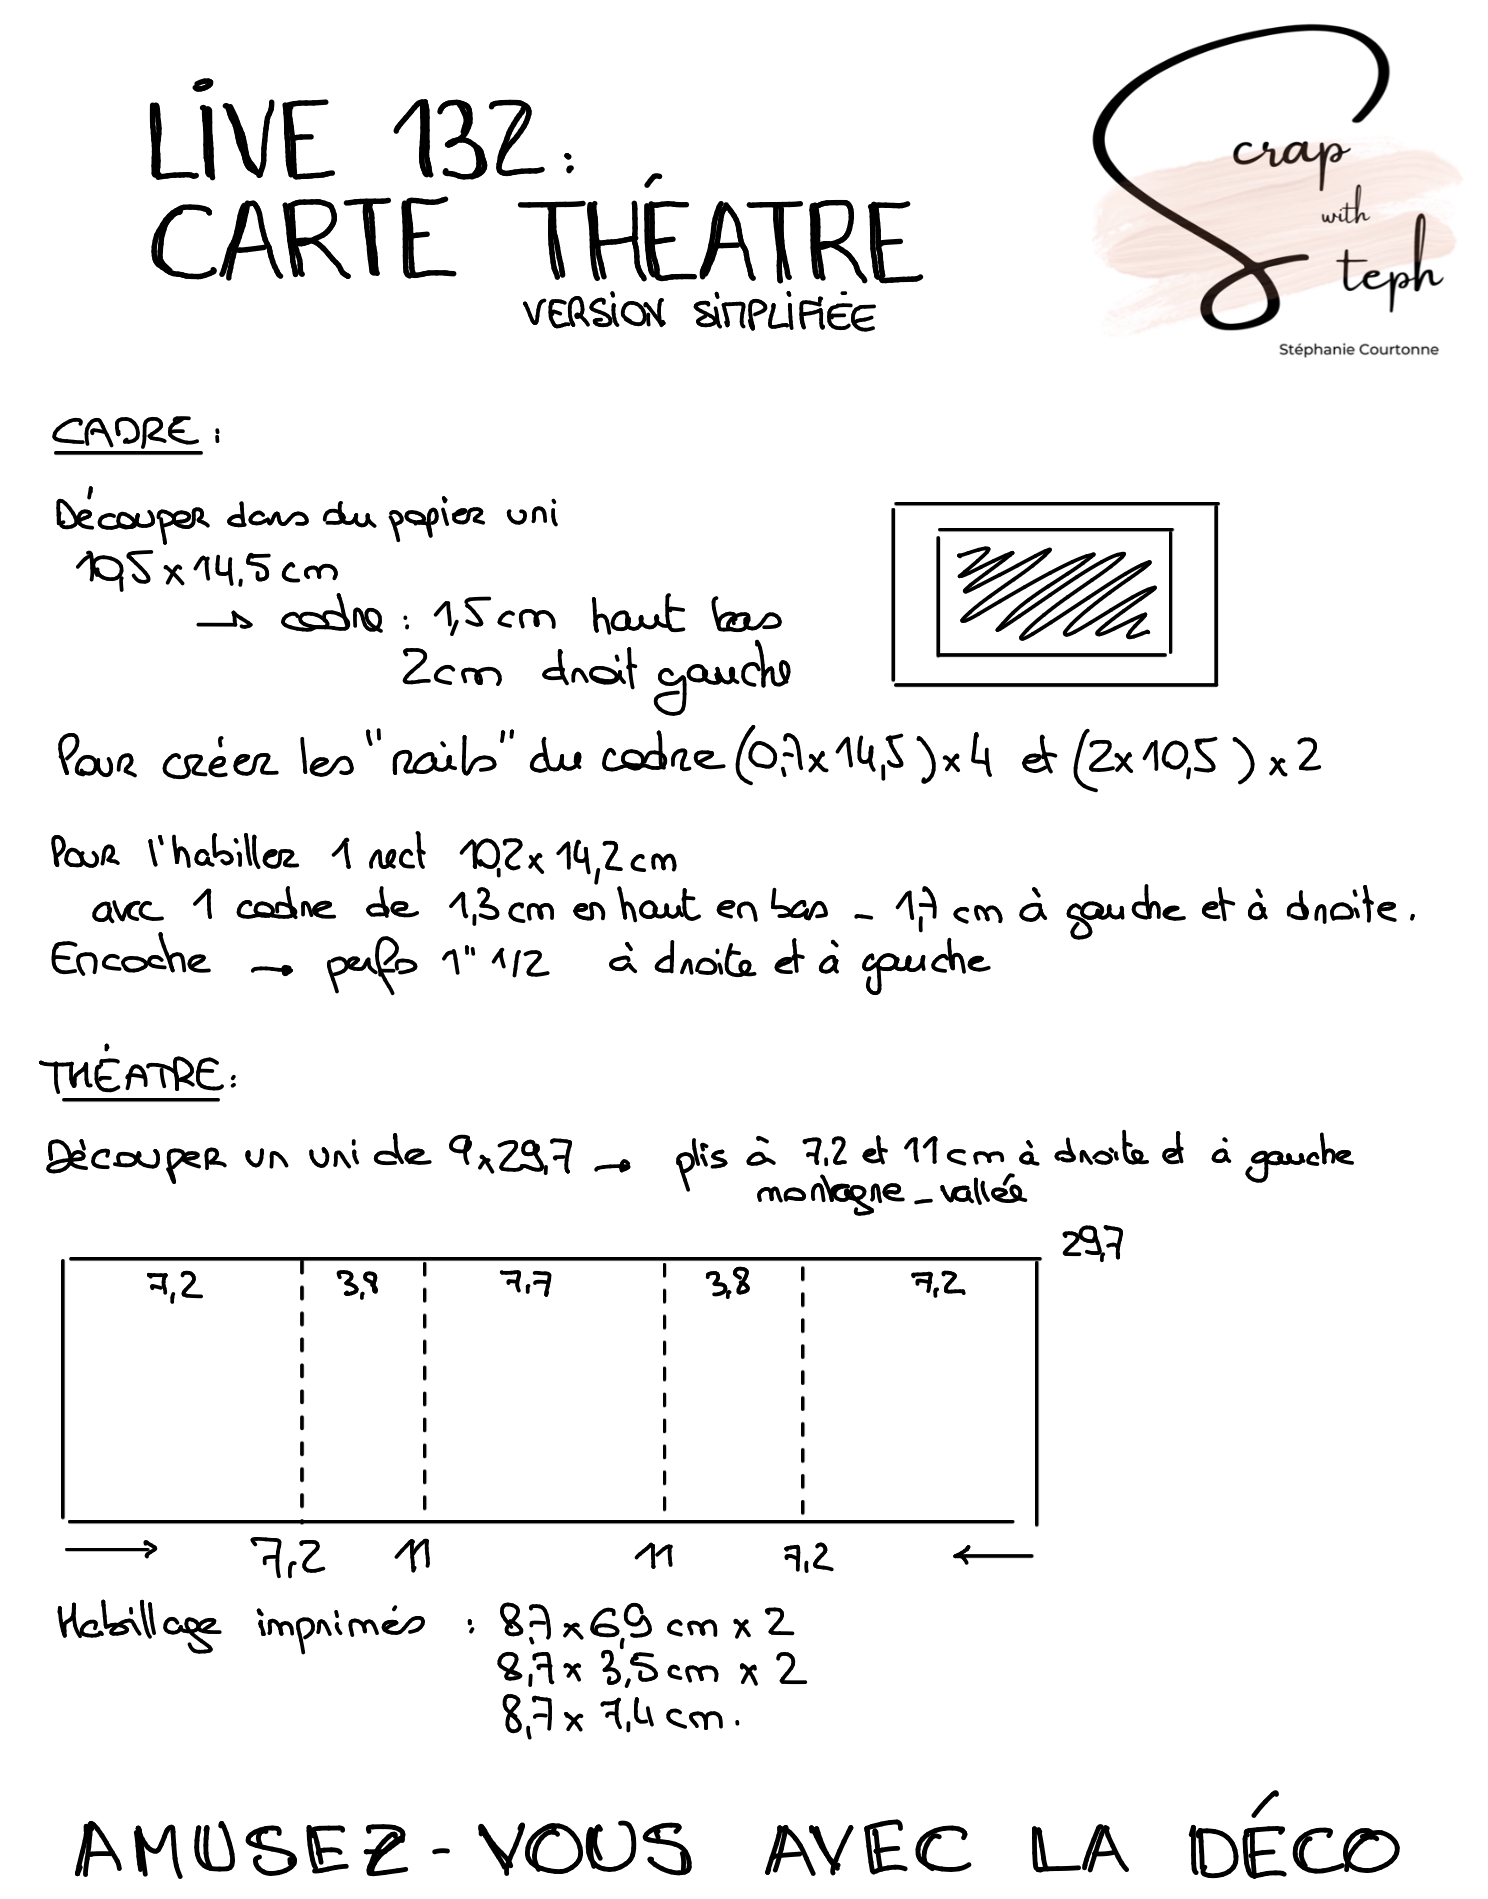 LIVE 132:
CARTE THÉATRE
VERSION SIMPLIFIÉE
Scrap
with
Steph
Stéphanie Courtonne
CADRE :
Découper dans du papier uni
10,5 x 14,5 cm
→ cadre : 1,5 cm haut bas
2cm droit gauche
Pour créer les "rails" du cadre (0,7x14,5) x 4 et (2x10,5) x 2
Pour l'habiller 1 rect 10,2 x 14,2 cm
avec 1 cadre de 1,3 cm en haut en bas - 1,7 cm à gauche et à droite.
Encoche → perfo 1" 1/2 à droite et à gauche
THÉATRE:
Découper un uni de 9x29,7 → plis à 7,2 et 11 cm à droite et à gauche
montagne - vallée
29,7
7,2 3,8 7,7 3,8 7,2
→ 7,2 11 11 7,2 ←
Habillage imprimés : 8,7 x 6,9 cm x 2
8,7 x 3,5 cm x 2
8,7 x 7,4 cm.
AMUSEZ-VOUS AVEC LA DÉCO